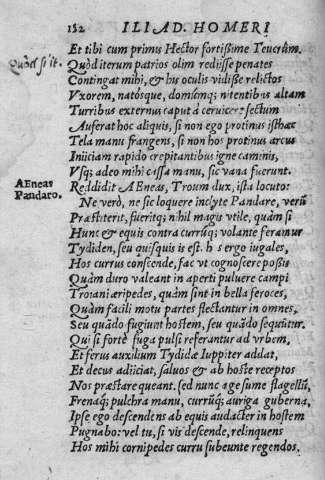 182 ILIAD. HOMERI
Et tibi cum primus Hector fortißime Teucrûm.
Quòd si it.
Quòd iterum patrios olim redijsse penates
Contingat mihi, & his oculis vidiße relictos
Vxorem, natósque, domúmq; nitentibus altam
Turribus externus caput à ceruice sectum
Auferat hoc aliquis, si non ego protinus isthæc
Tela manu frangens, si non hos protinus arcus
Inijciam rapido crepitantibus igne caminis,
Vsq; adeo mihi cassa manu, sic vana fuerunt.
AEneas
Pandaro.
Reddidit AEneas, Troum dux, ista locuto:
Ne verò, ne sic loquere inclyte Pandare, verũ
Præstiterit, fueritq; nihil magis vtile, quàm si
Hunc & equis contra currũq; volante feramur
Tydiden, seu quisquis is est. his ergo iugales,
Hos currus conscende, fac vt cognoscere poßis
Quàm duro valeant in aperti puluere campi
Troianiæripedes, quàm sint in bella feroces,
Quàm facili motu partes flectantur in omnes,
Seu quãdo fugiunt hostem, seu quãdo sequũtur.
Qui si fortè fuga pulsi referantur ad vrbem,
Et ferus auxilium Tydidæ Iuppiter addat,
Et decus adijciat, saluos & ab hoste receptos
Nos præstare queant. sed nunc age sume flagellũ,
Frenaq; pulchra manu, currũq; auriga guberna,
Ipse ego descendens ab equis audacter in hostem
Pugnabo: vel tu, si vis descende, relinquens
Hos mihi cornipedes curru subeunte regendos.